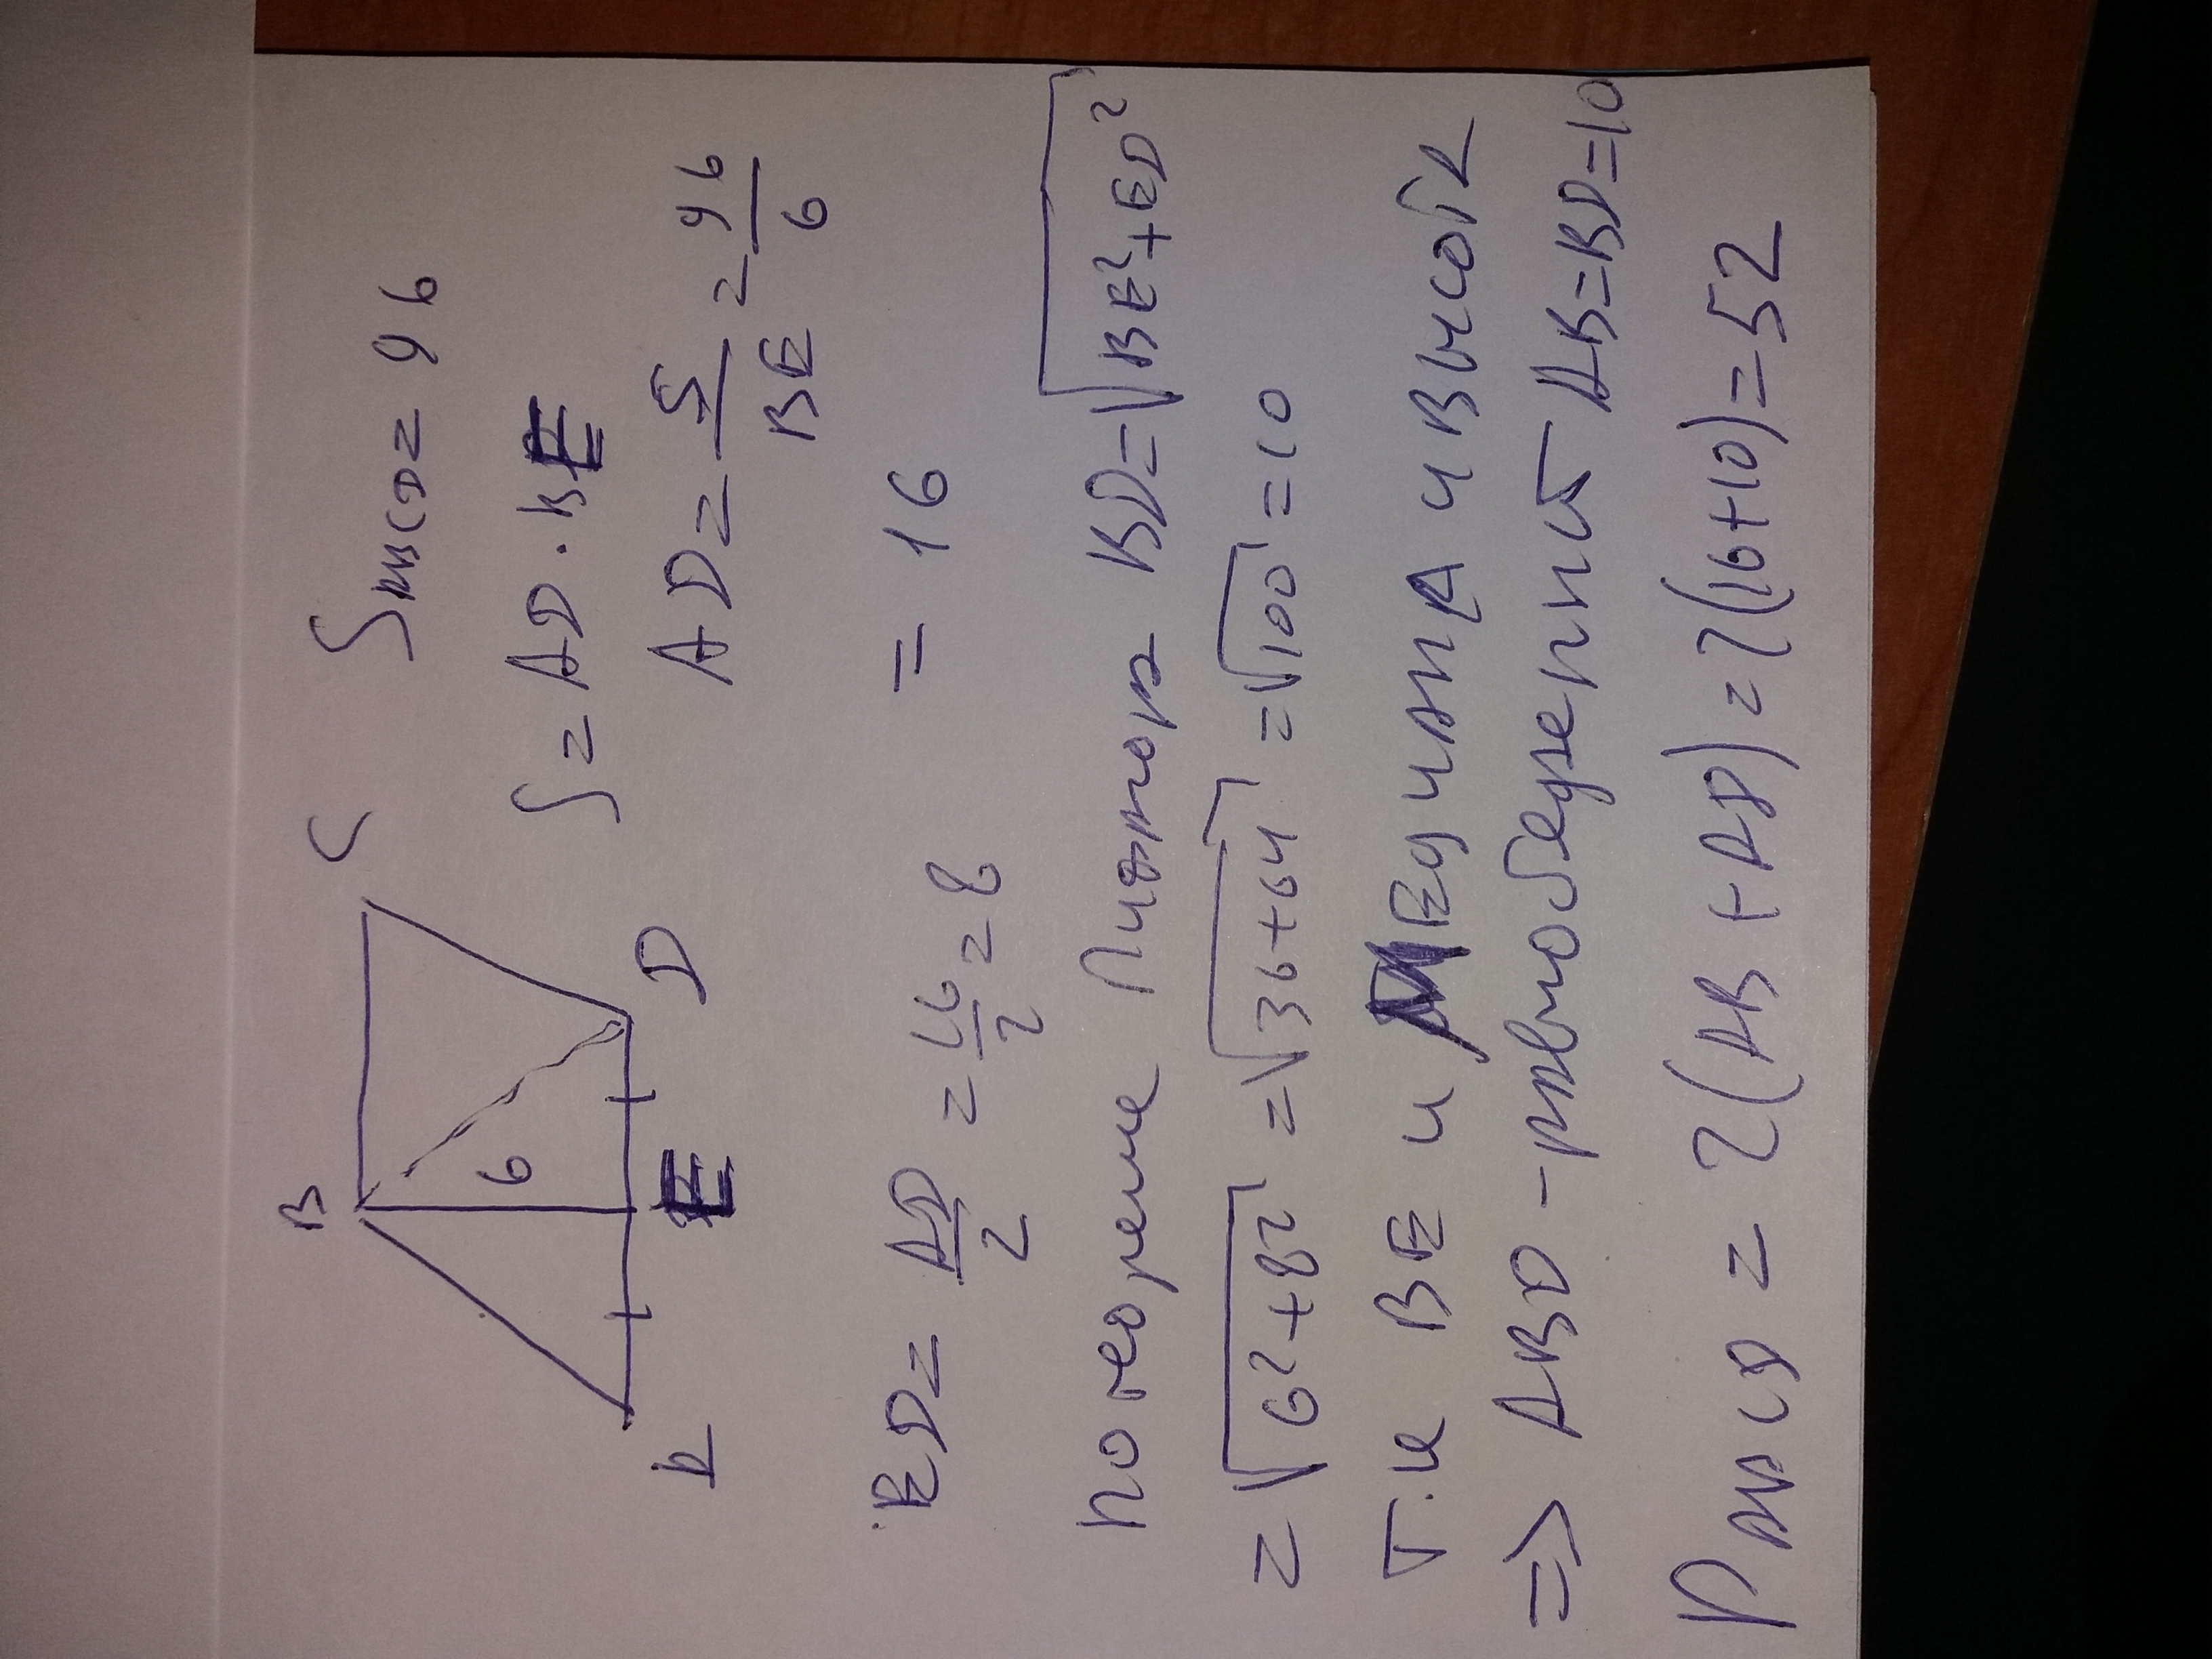 B
C
S ABCD = 96
6
A
E
D
S = AD · BE
AD = S/BE = 96/6
= 16
ED = AD/2 = 16/2 = 8
По теореме Пифагора BD = √(BE²+ED²)
= √(6²+8²) = √(36+64) = √100 = 10
Т.к BE и медиана и высота
=> ABD - равнобедренный AB=BD=10
P ABCD = 2(AB + AD) = 2(16+10) = 52